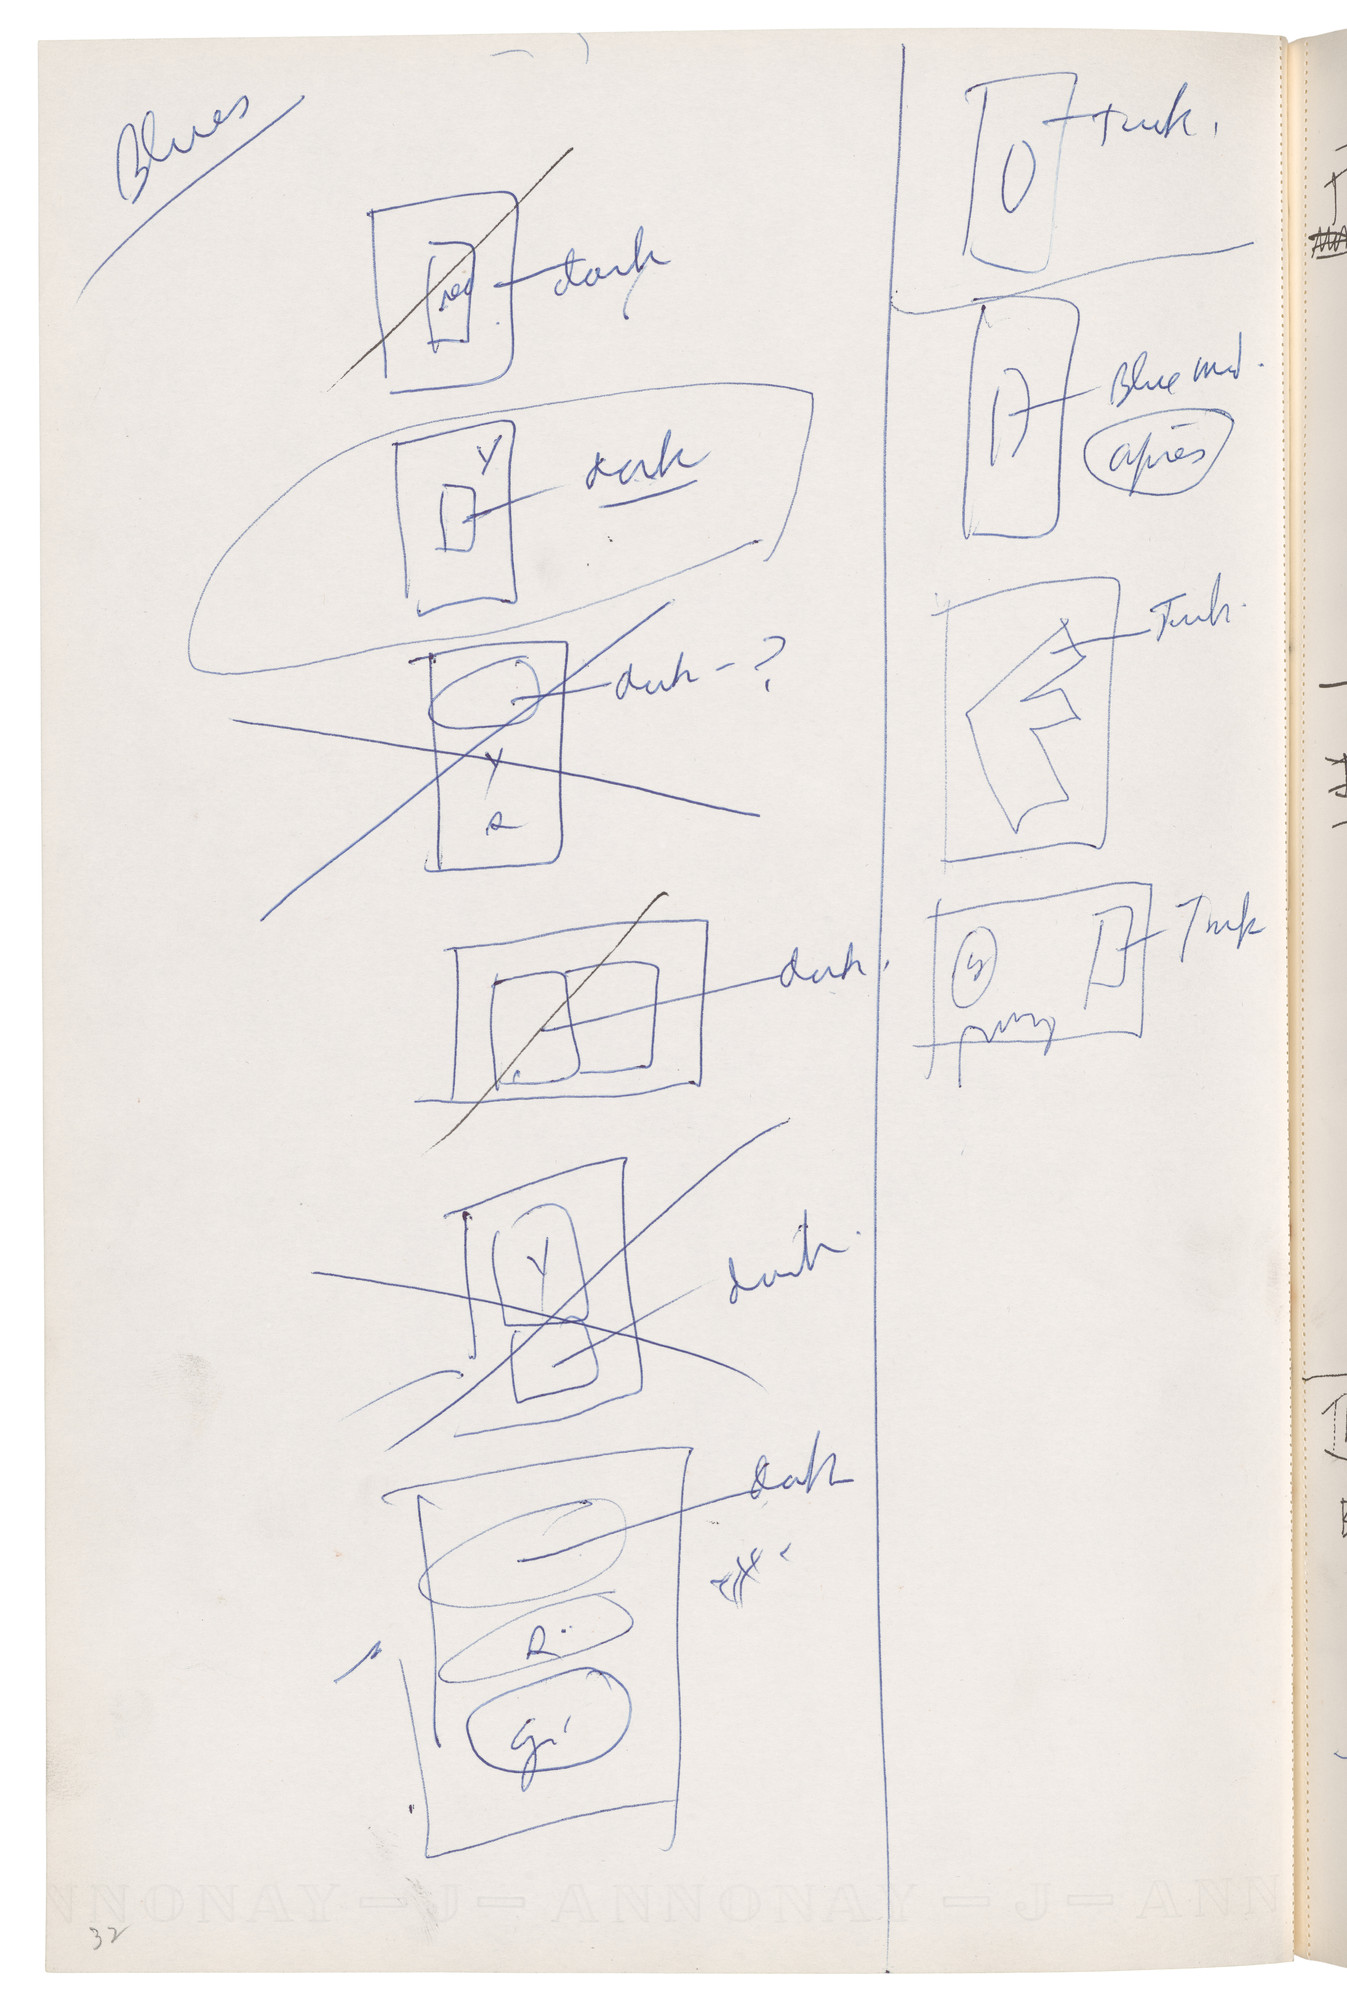 Blues
red
dark
Y
dark
dark - ?
Y
R
dark.
Y
dark.
dark
R
gr
Turk.
Blue mid.
après
Turk.
Turk
32
ANNONAY - J - ANNONAY - J - ANN